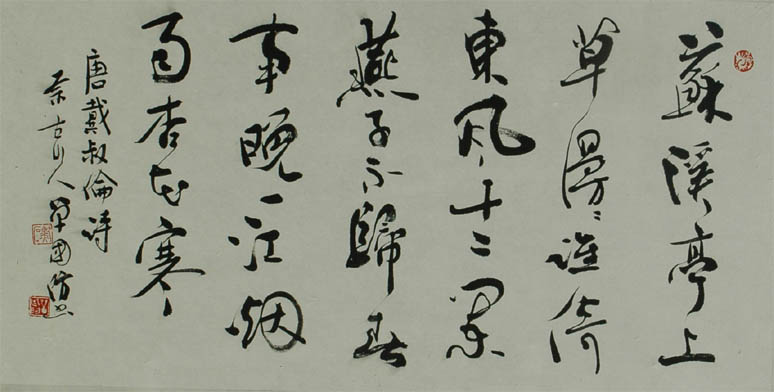 蘇溪亭上
草漫〻誰倚
東風十二闌
燕子不歸春
事晚一汀烟
雨杏花寒
唐戴叔倫詩
人單國